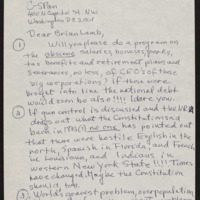 C-SPAN
400 N. Capitol St. N.W.
Washington DC 20001
Dear Brian Lamb,
① Will you please do a program on
the obscene salaries, bonuses, perks,
tax benefits and retirement plans and
severances, no less, of CEO's of those
big corporations? If those were
brought into line the national debt
would soon be also!!!! I dare you.
② If gun control is discussed and the
drags out what the Constitution said
back in 17 no one has pointed out
that there were hostile English in the
north, Spanish in Florida, and French
in Louisiana, and Indians in
western New York State!!!! Times
have changed. Maybe the Constitution
should too.
World's gravest problem, overpopulation